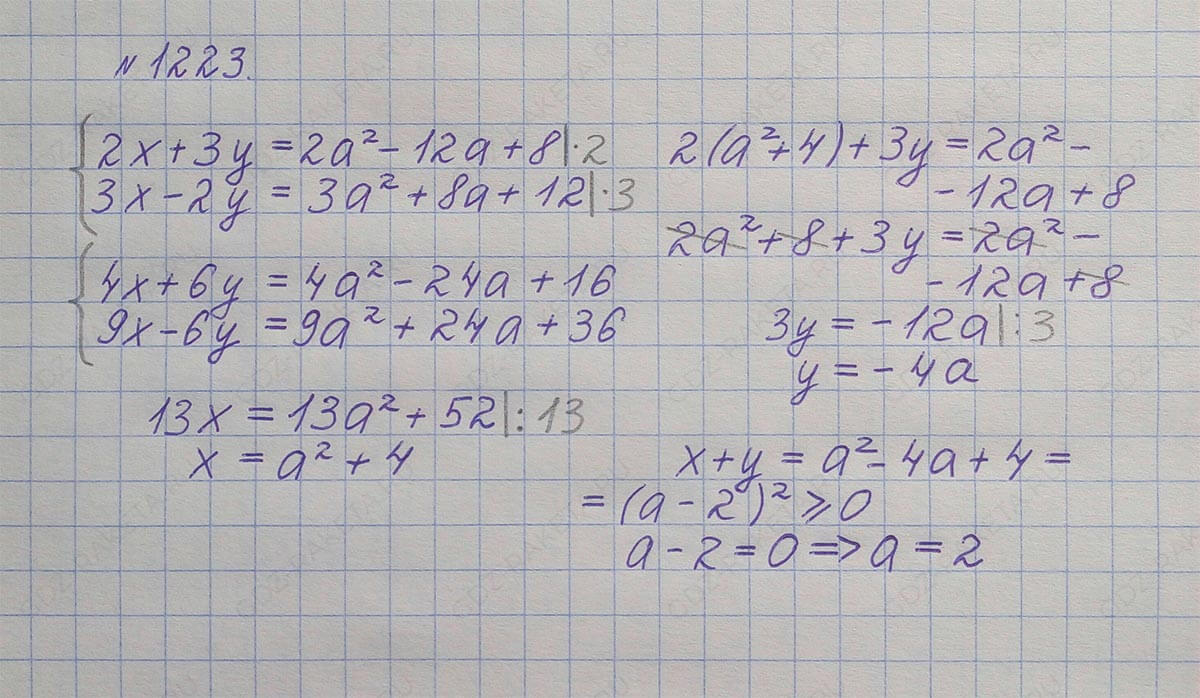 № 1223.
2x + 3y = 2a² - 12a + 8 | · 2
3x - 2y = 3a² + 8a + 12 | · 3
4x + 6y = 4a² - 24a + 16
9x - 6y = 9a² + 24a + 36
13x = 13a² + 52 | : 13
x = a² + 4
2(a² + 4) + 3y = 2a² -
- 12a + 8
2a² + 8 + 3y = 2a² -
- 12a + 8
3y = - 12a | : 3
y = - 4a
x + y = a² - 4a + 4 =
= (a - 2)² ⩾ 0
a - 2 = 0 => a = 2